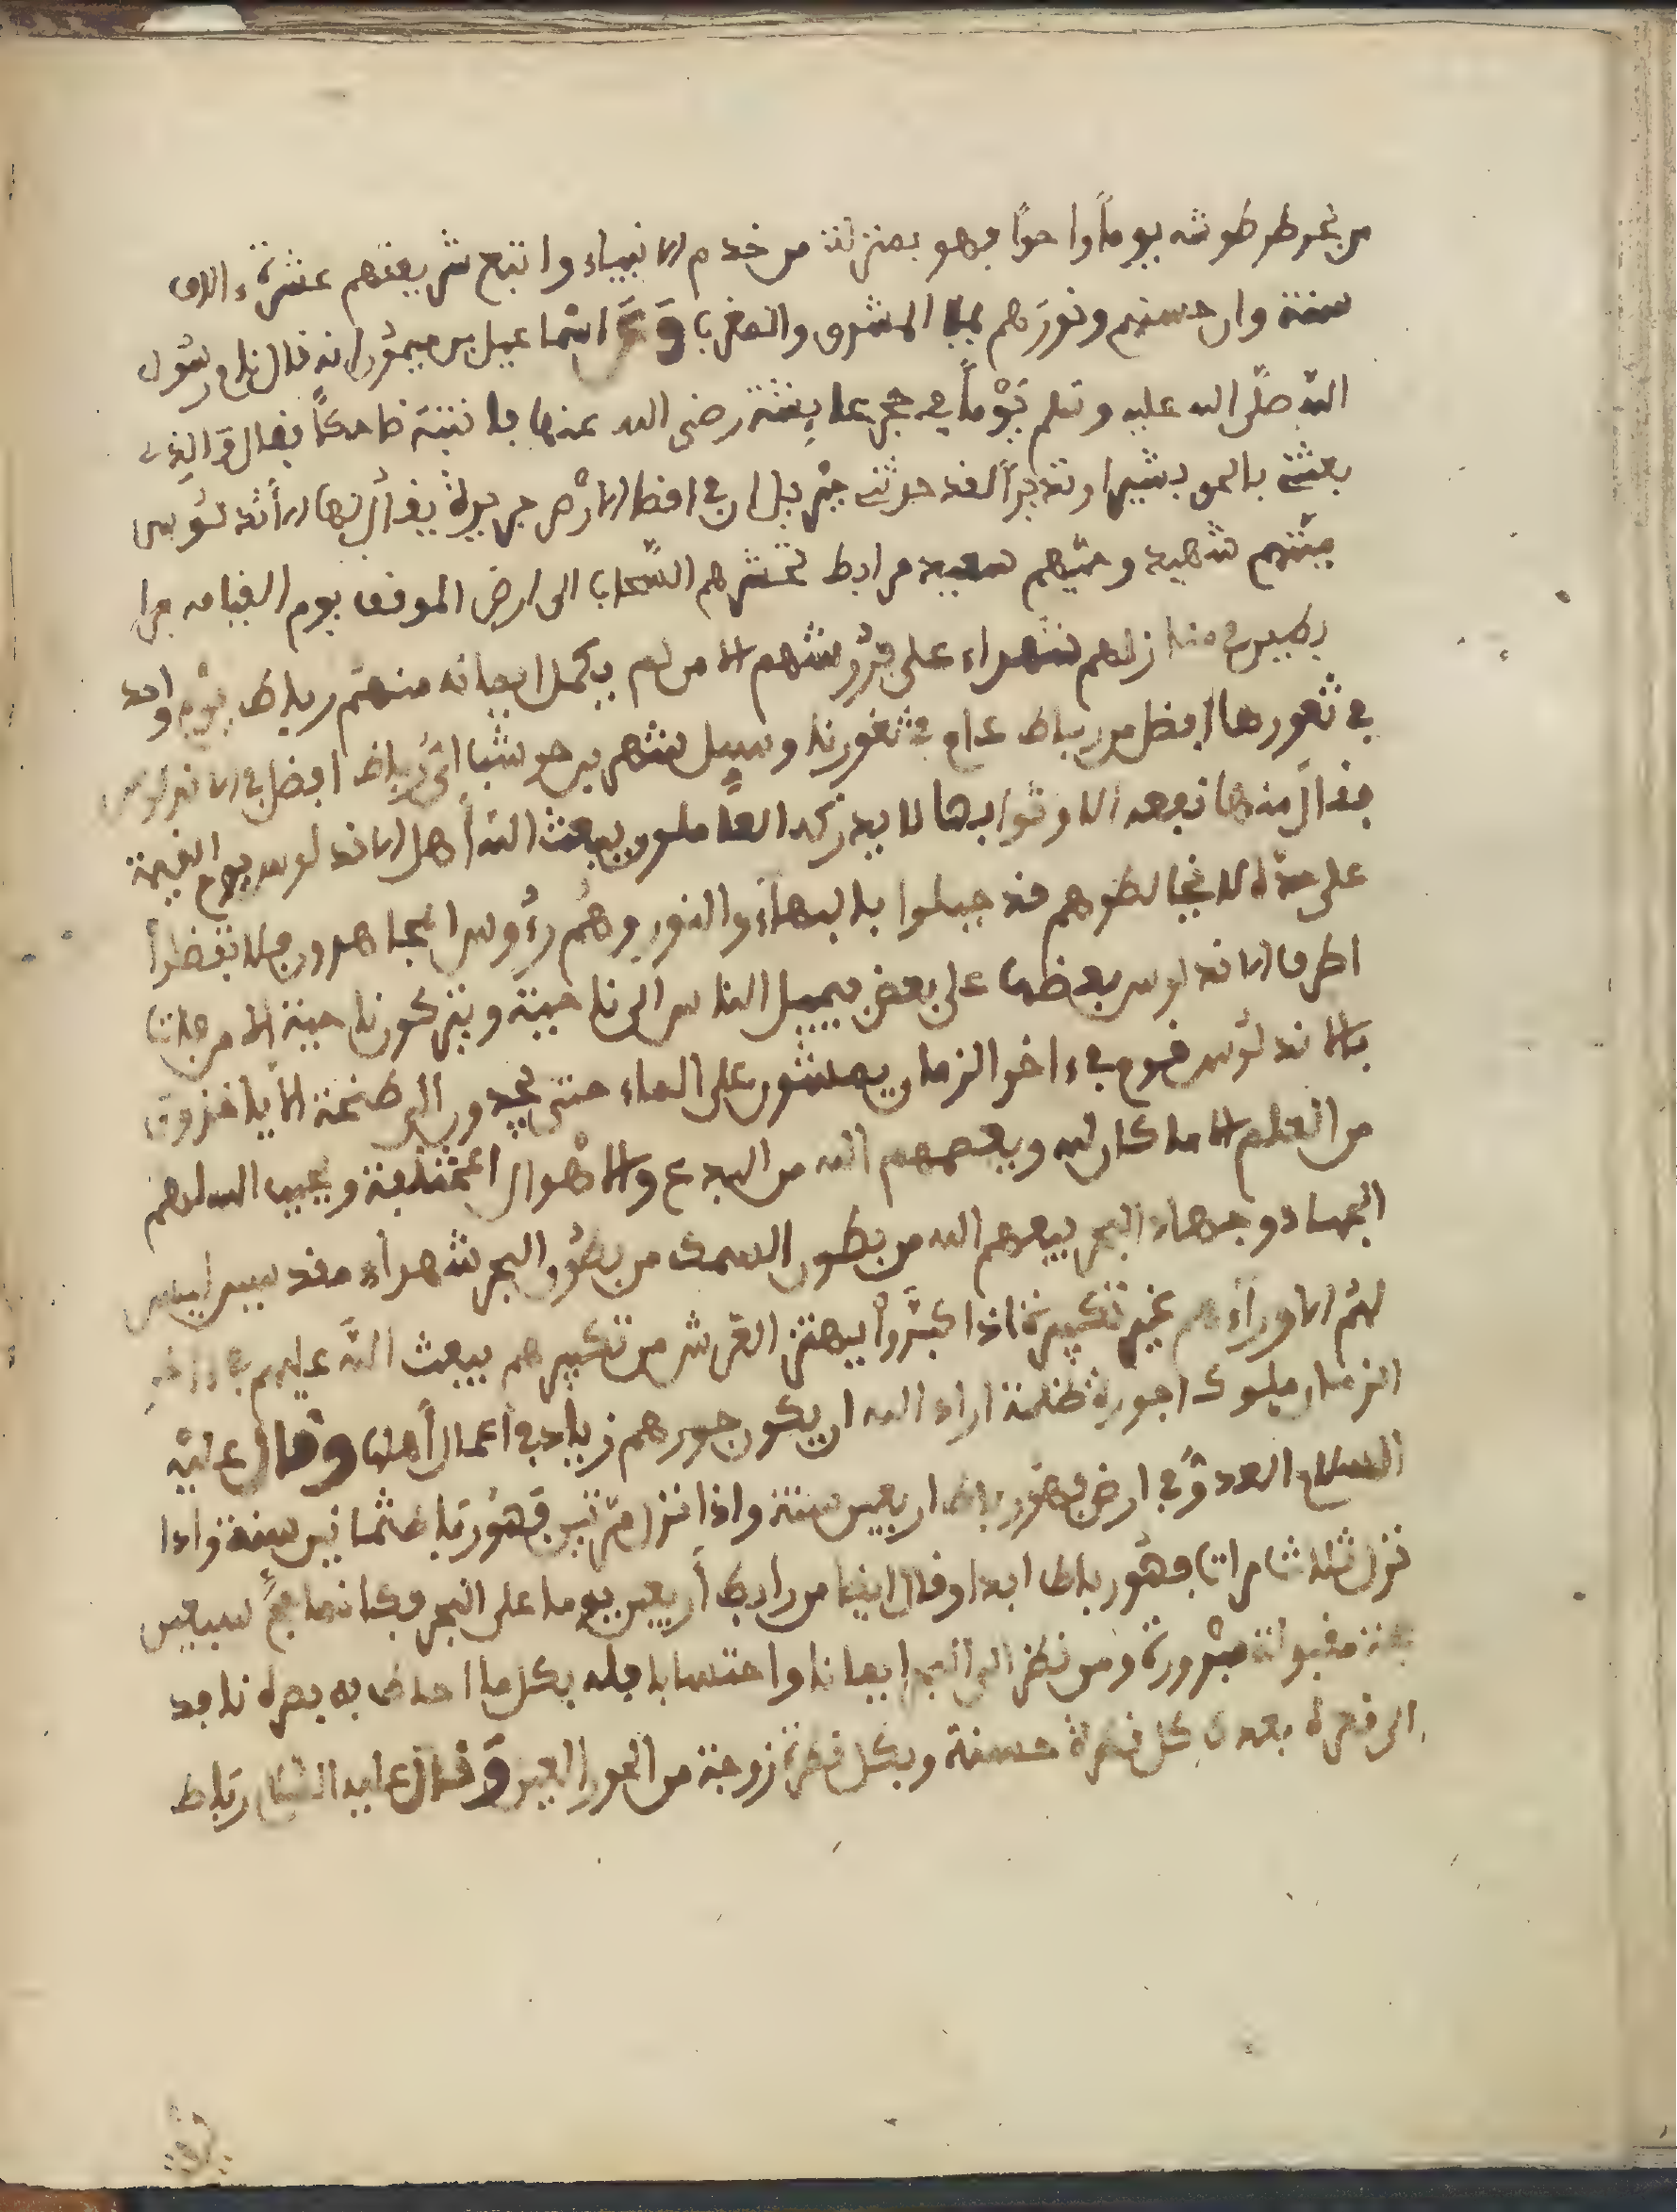 من ثغر طرطوشه يوماً واحداً فهو بمنزلة من خدم الانبياء واتبع شريعتهم عشرة ءالاف
سنة وان حسنهم ونورهم يملا المشرق والمغرب وعن اسماعيل بن ميمون انه قال نام رسول
الله صلى الله عليه وسلم يوماً في حجر عايشة رضى الله عنها فانتبه ضاحكاً فقال والذى
بعثني بالحق بشيرا ونذيراً لقد حدثني جبريل ان في اقطار الارض جزيرة يقال لها الأندلوس
ميتهم شهيد وحيهم سعيد مرابط تحشرهم السحاب الى ارض الموقف يوم القيامه مرا
بطين في منازلهم شهداء على فروشهم الا من لم يكمل ايمانه منهم رباط يوم واحد
في ثغورها افضل من رباط عام في ثغورنا وسيل شهر بن حوشب اىّ رباط افضل في الاندلوس
فقال منها بقعه الا وثوابها لا يدركه العاملون يبعث الله أهل الاندلوس يوم القيمة
على حدة لا يخالطوهم قد جبلوا بالبهاء والنور وهم رؤوس المجاهدون فلا تفضلوا
اطرف الاندلوس بعضها على بعض فيميل الناس الى ناحية ويتركون ناحية الا من مات
بالاندلوس قوم في ءاخر الزمان يمشون على الماء حتى يجدون الى طنجة لا ياخذون
من العلم الا ما كان لله ويعصمهم الله من البدع والاهواء المختلفة ويحبب الله لهم
الجهاد وجهاد البحر يبعثهم الله من بطون السمك من بطون البحر شهداء مقدسين ليس
لهم الا وراءهم غير تكبيرة اذا كبروا يهتز العرش من تكبيرهم يبعث الله عليهم في ءاخر
الزمان ملوك اجورة ظلمة اراد الله ان يكون جورهم زيادة في أعمال أهلها وقال عليه
السلام العدو في ارض فهو رباط اربعين سنة واذا نزل مرتين فهو رباط ثمانين سنة واذا
نزل ثلاث مرات فهو رباط ابدا وقال ايضا من رابط أربعين يوما على البحر فكانما حج سبعين
حجة مقبولة مبرورة ومن نظر الى البحر ايمانا واحتسابا فله بكل ما احاط به بصره نافد
الى قعره بعدد كل قطرة حسنة وبكل قطرة زوجة من الحور العين وقال عليه السلام رباط